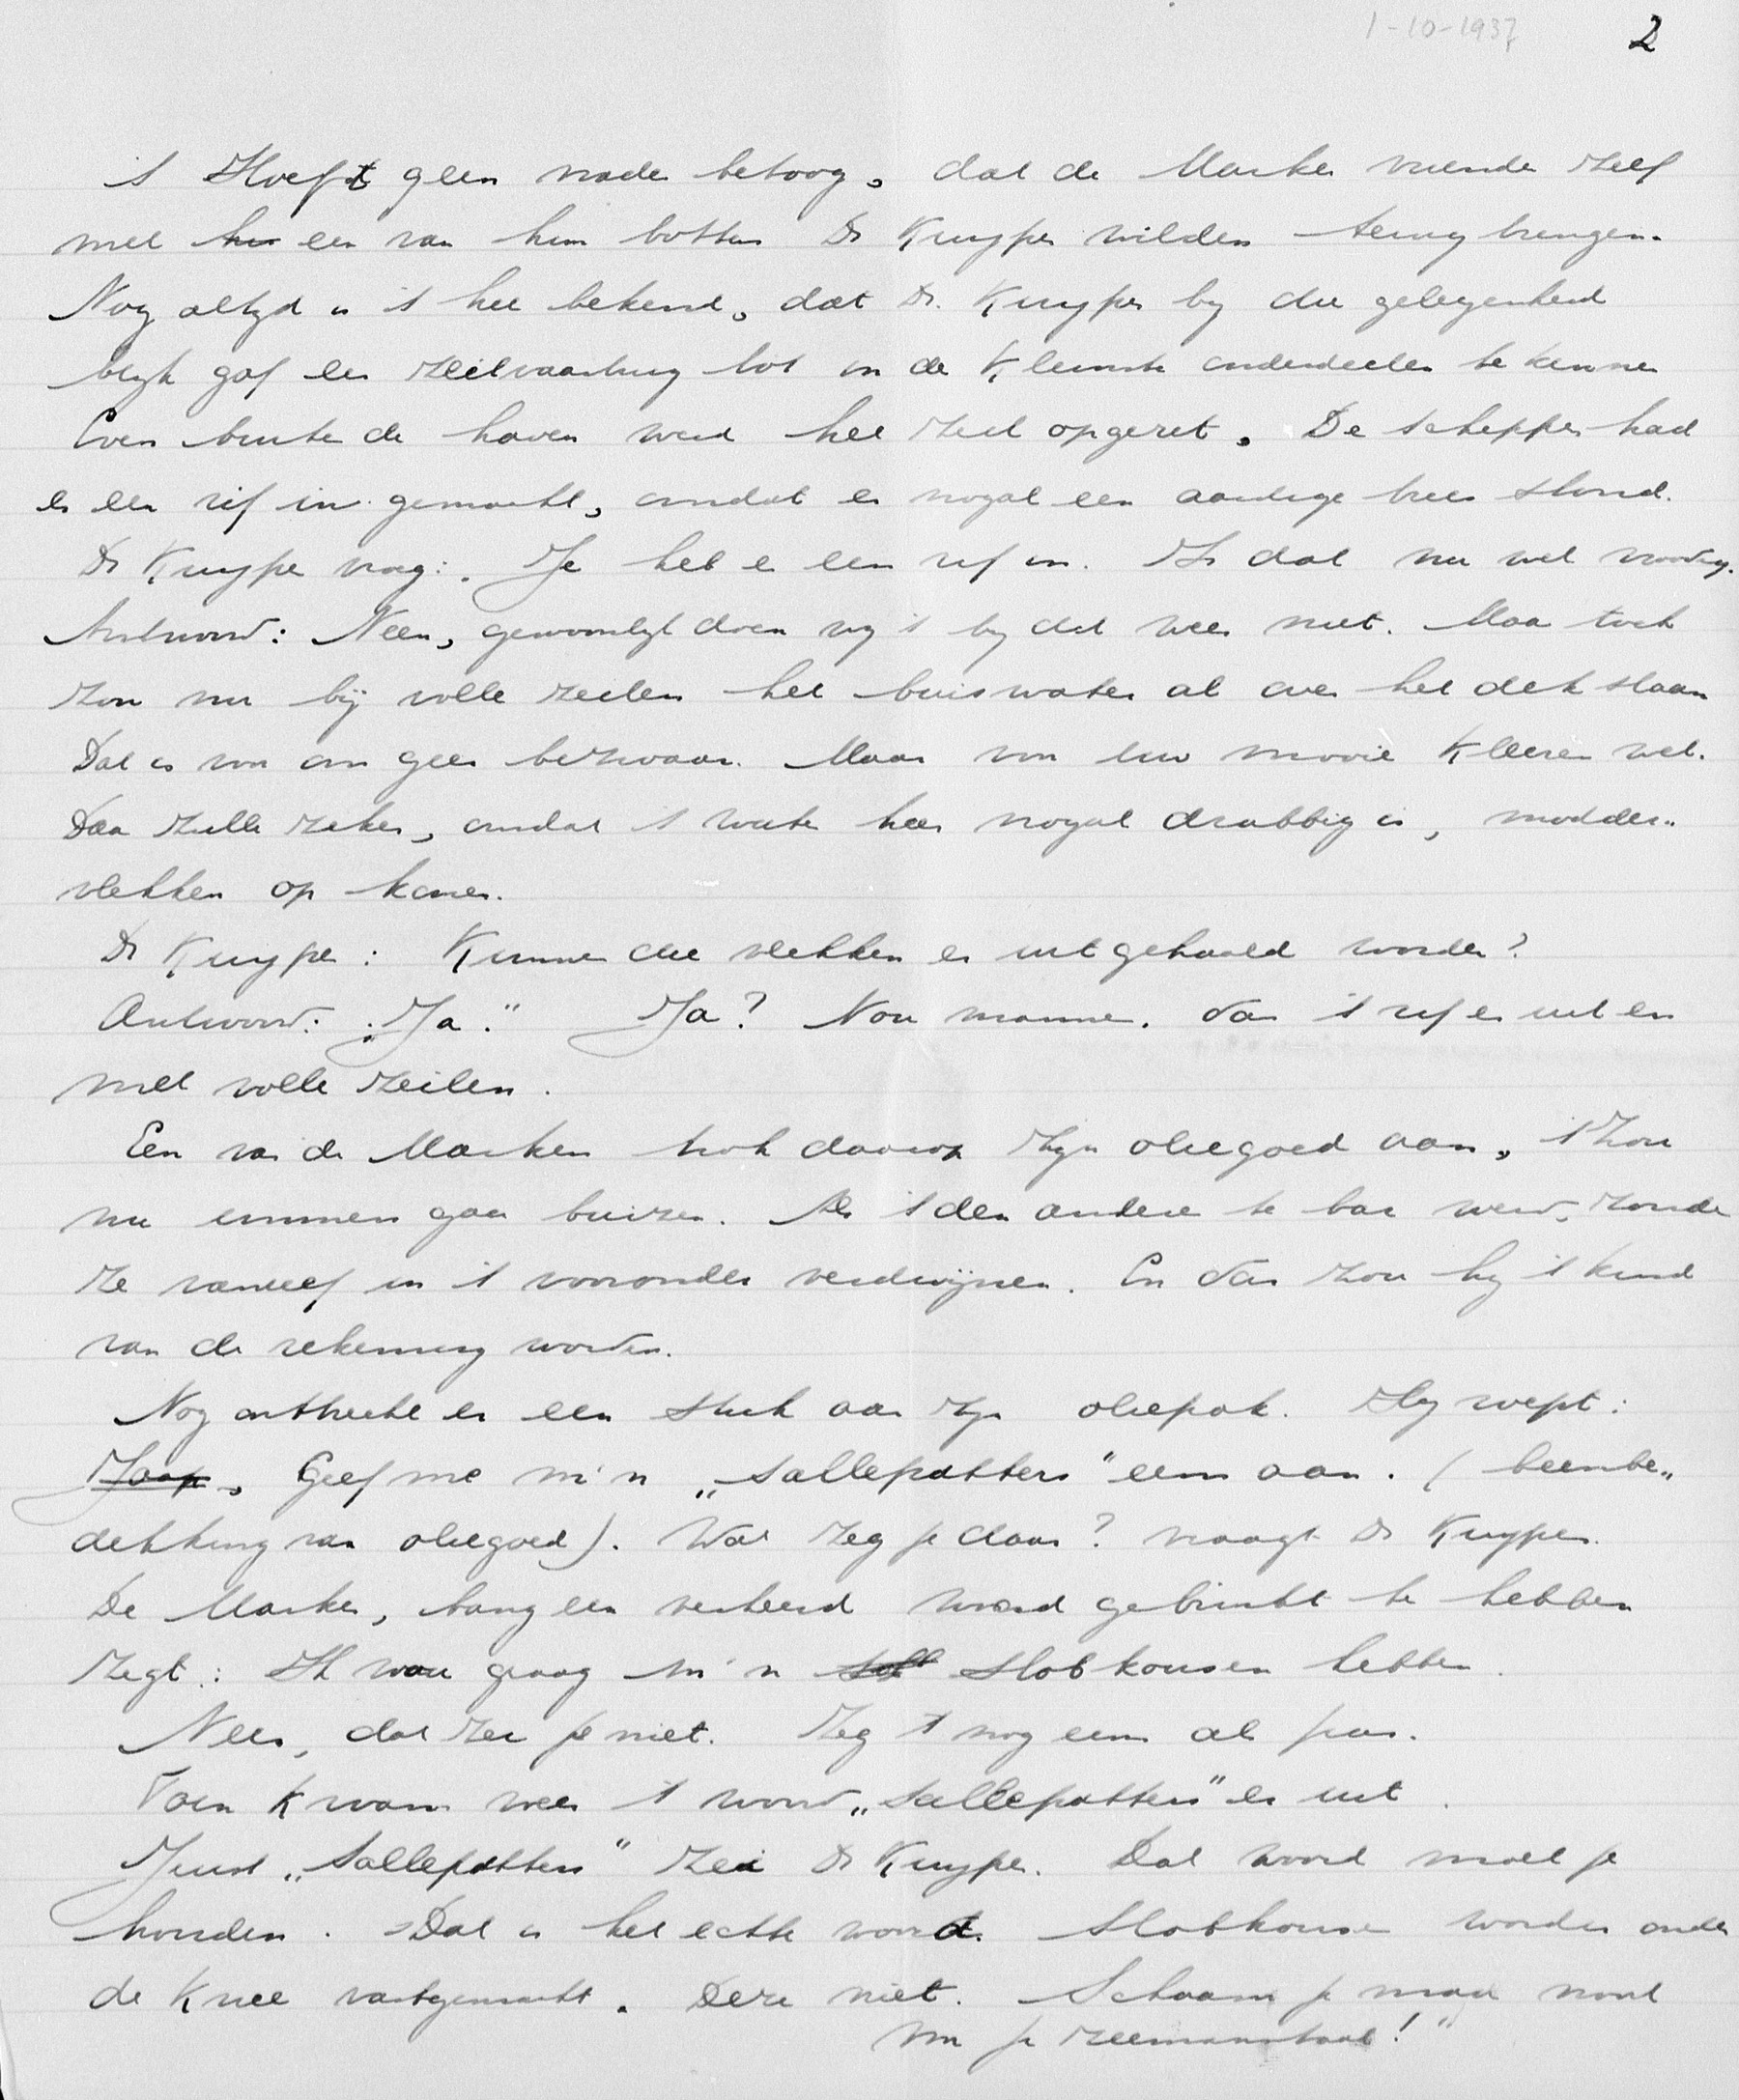 1-10-1937
2
't Hoeft geen nader betoog, dat de Marker vrienden zelf
met een van hun botters Dr Kuyper wilden terug brengen.
Nog altyd is 't hier bekend, dat Dr. Kuyper by die gelegenheid
blyk gaf een zeilvaartuig tot in de kleinste onderdeelen te kennen
Even buiten de haven werd het zeil opgezet. De schipper had
er een rif in gemaakt, omdat er nogal een aardige bries stond.
Dr Kuyper vroeg: Je heb er een rif in. Is dat nu wel noodig.
Antwoord: Neen, gewoonlyk doen wy 't by dit weer niet. Maar toch
zou nu bij volle zeilen het buiswater al over het dek slaan
Dat is voor ons geen bezwaar. Maar voor uw mooie kleeren wel.
Daar zullen zeker, omdat 't water hier nogal drabbig is, modder„
vlekken op komen.
Dr Kuyper: Kunnen die vlekken er uit gehaald worden?
Antwoord: „Ja." Ja? Nou mannen. dan 't rif er uit en
met volle zeilen.
Een van de Markers trok daarop zyn oliegoed aan, 't zou
nu immers gaan buizen. Als 't den anderen te bar werd, zouden
ze vanzelf in 't vooronder verdwijnen. En dan zou hy 't kind
van de rekening worden.
Nog ontbreekt er een stuk aan zyn oliepak. Hy roept:
Jaap, Geef me m'n „sallepatters" eens aan. (beenbe„
dekking van oliegoed). Wat zeg je daar? vraagt Dr Kuyper.
De Marker, bang een verkeerd woord gebruikt te hebben
zegt: Ik wou graag m'n slobkousen hebben.
Neen, dat zei je niet. Zeg 't nog eens als pas.
Toen kwam weer 't woord „sallepatters" er uit.
Juist „Sallepatters" zei Dr Kuyper. Dat woord moet je
houden. Dat is het echte woord. Slobkousen worden onder
de knie vastgemaakt. Deze niet. Schaam je maar nooit
voor je zeemanstaal!"